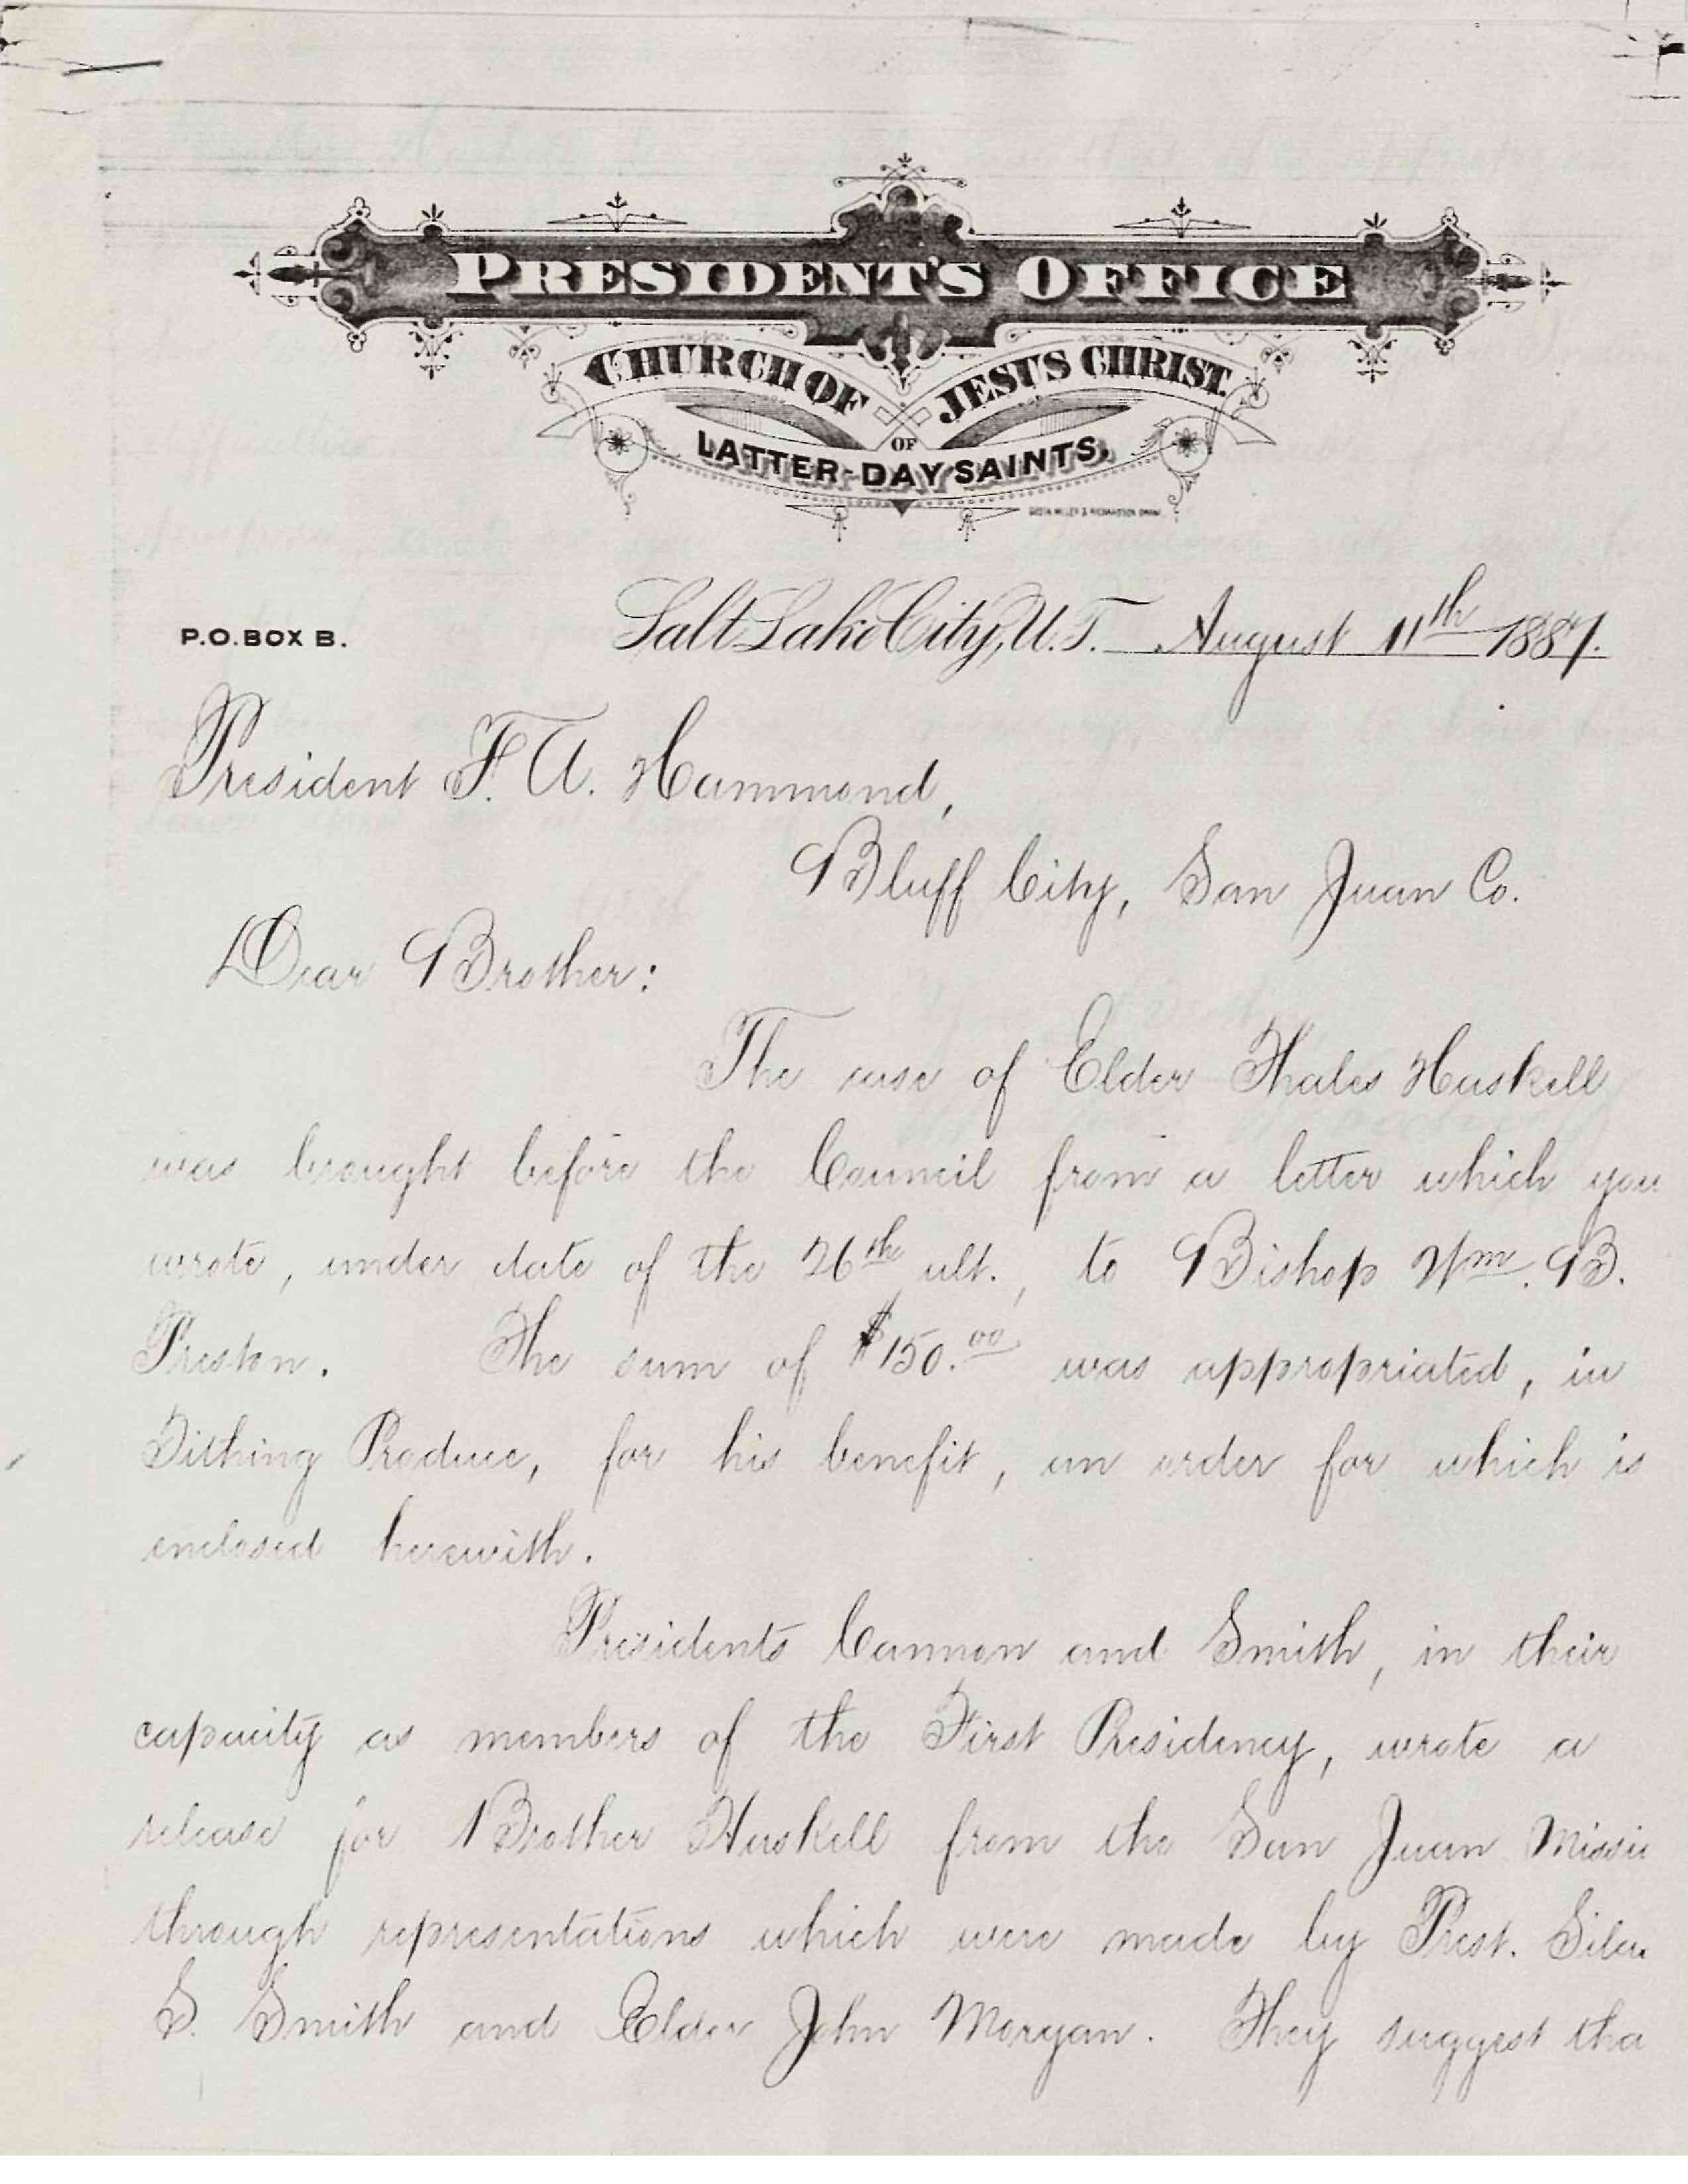 PRESIDENT'S OFFICE
CHURCH OF JESUS CHRIST
OF
LATTER-DAY SAINTS.
P.O. BOX B.
Salt Lake City, U.T. August 11th 1887.
President F. A. Hammond,
Bluff City, San Juan Co.
Dear Brother:
The case of Elder Thales Haskell
was brought before the Council from a letter which you
wrote, under date of the 26th ult., to Bishop Wm. B.
Preston. The sum of $150.00 was appropriated, in
Tithing Produce, for his benefit, an order for which is
enclosed herewith.
Presidents Cannon and Smith, in their
capacity as members of the First Presidency, wrote a
release for Brother Haskell from the San Juan Missio
through representations which were made by Prest. Silas
S. Smith and Elder John Morgan. They suggest tha